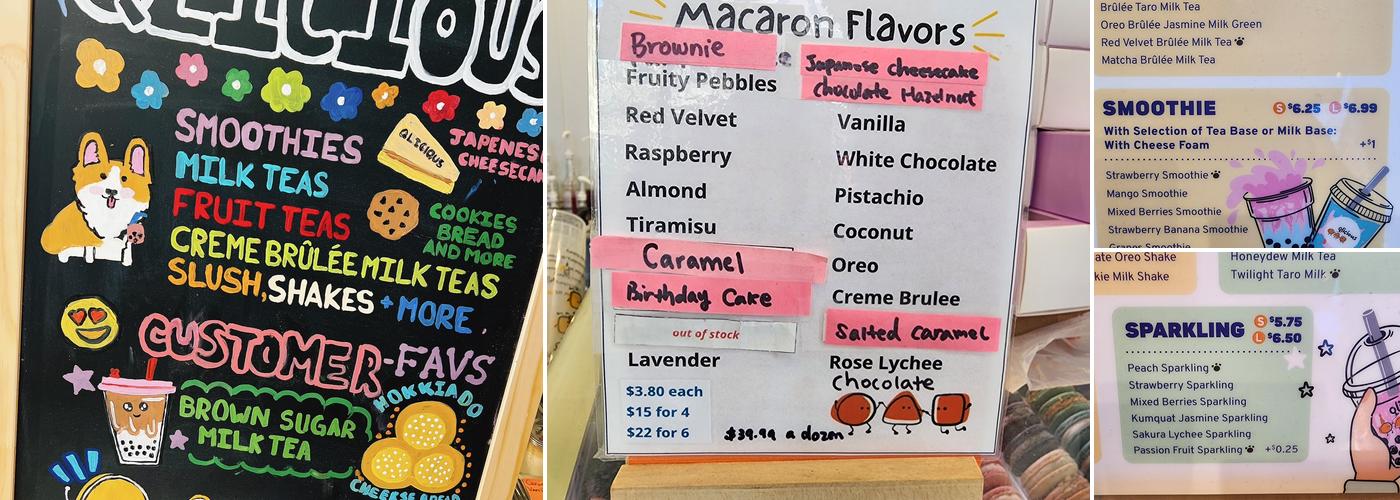 QLICIOUS
SMOOTHIES
MILK TEAS
FRUIT TEAS
CREME BRÛLÉE MILK TEAS
SLUSH, SHAKES + MORE
QLICIOUS
JAPENESE
CHEESECAKE
COOKIES
BREAD
AND MORE
CUSTOMER-FAVS
BROWN SUGAR
MILK TEA
HOKKIADO
CHEESE BREAD
Macaron Flavors
Brownie
Fruity Pebbles
Red Velvet
Raspberry
Almond
Tiramisu
Caramel
Birthday Cake
out of stock
Lavender
$3.80 each
$15 for 4
$22 for 6
$39.99 a dozen
Japanese cheesecake
chocolate Hazelnut
Vanilla
White Chocolate
Pistachio
Coconut
Oreo
Creme Brulee
Salted Caramel
Rose Lychee
chocolate
Brûlée Taro Milk Tea
Oreo Brûlée Jasmine Milk Green
Red Velvet Brûlée Milk Tea
Matcha Brûlée Milk Tea
SMOOTHIE S $6.25 L $6.99
With Selection of Tea Base or Milk Base:
With Cheese Foam +$1
Strawberry Smoothie
Mango Smoothie
Mixed Berries Smoothie
Strawberry Banana Smoothie
Grapes Smoothie
qlicious
ate Oreo Shake
kie Milk Shake
Honeydew Milk Tea
Twilight Taro Milk
SPARKLING S $5.75
L $6.50
Peach Sparkling
Strawberry Sparkling
Mixed Berries Sparkling
Kumquat Jasmine Sparkling
Sakura Lychee Sparkling
Passion Fruit Sparkling +$0.25